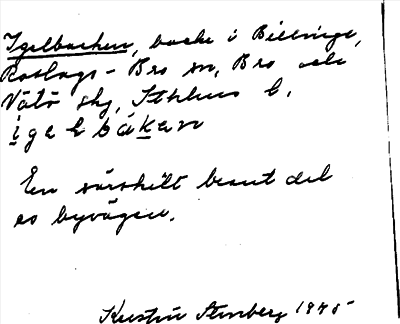 Igelbacken, backe i Billinge,
Roslags-Bro sn, Bro och
Vätö skg, Sthlms l.
i g e l b a k e n
En särskilt brant del
av byvägen.
Kerstin Stenberg 1975